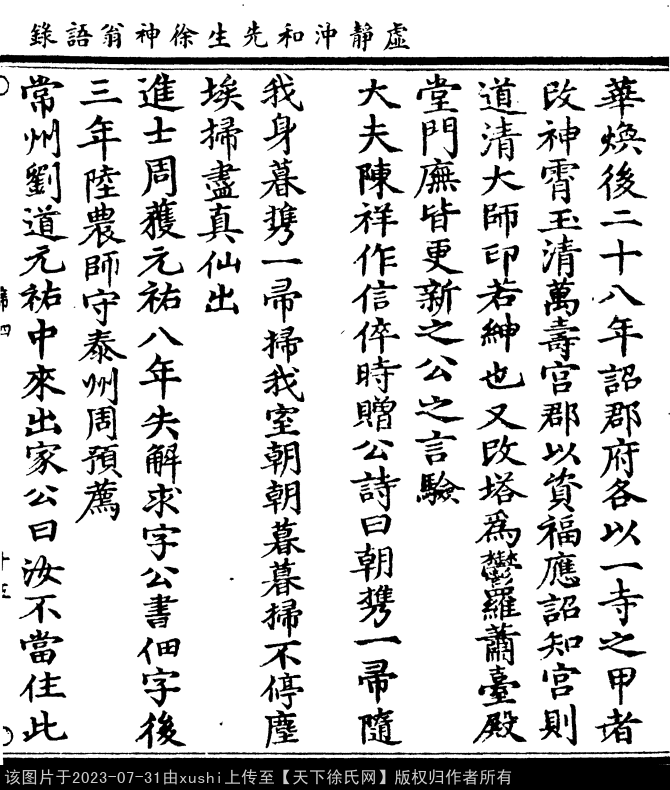 虛靜沖和先生徐神翁語錄
華煥後二十八年詔郡府各以一寺之甲者
改神霄玉清萬壽宮郡以資福應詔知宮則
道清大師印若紳也又改塔爲鬱羅蕭臺殿
堂門廡皆更新之公之言驗
大夫陳祥作信倅時贈公詩曰朝攜一帚隨
我身暮攜一帚掃我室朝朝暮暮掃不停塵
埃掃盡真仙出
進士周穫元祐八年失解求字公書佃字後
三年陸農師守泰州周預薦
常州劉道元祐中來出家公曰汝不當住此
第四
十五
该图片于2023-07-31由xushi上传至【天下徐氏网】版权归作者所有